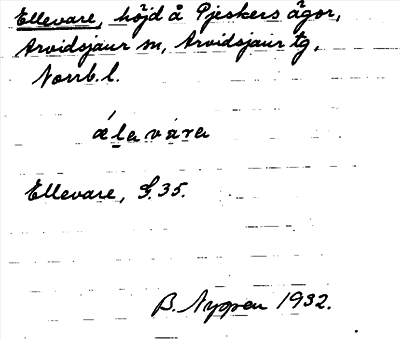 Ellevare, höjd å Pjeskers ägor,
Arvidsjaur sn, Arvidsjaur tg,
Norrb. l.
álavárɐ
Ellevare, G.35.
B. Nygren 1932.